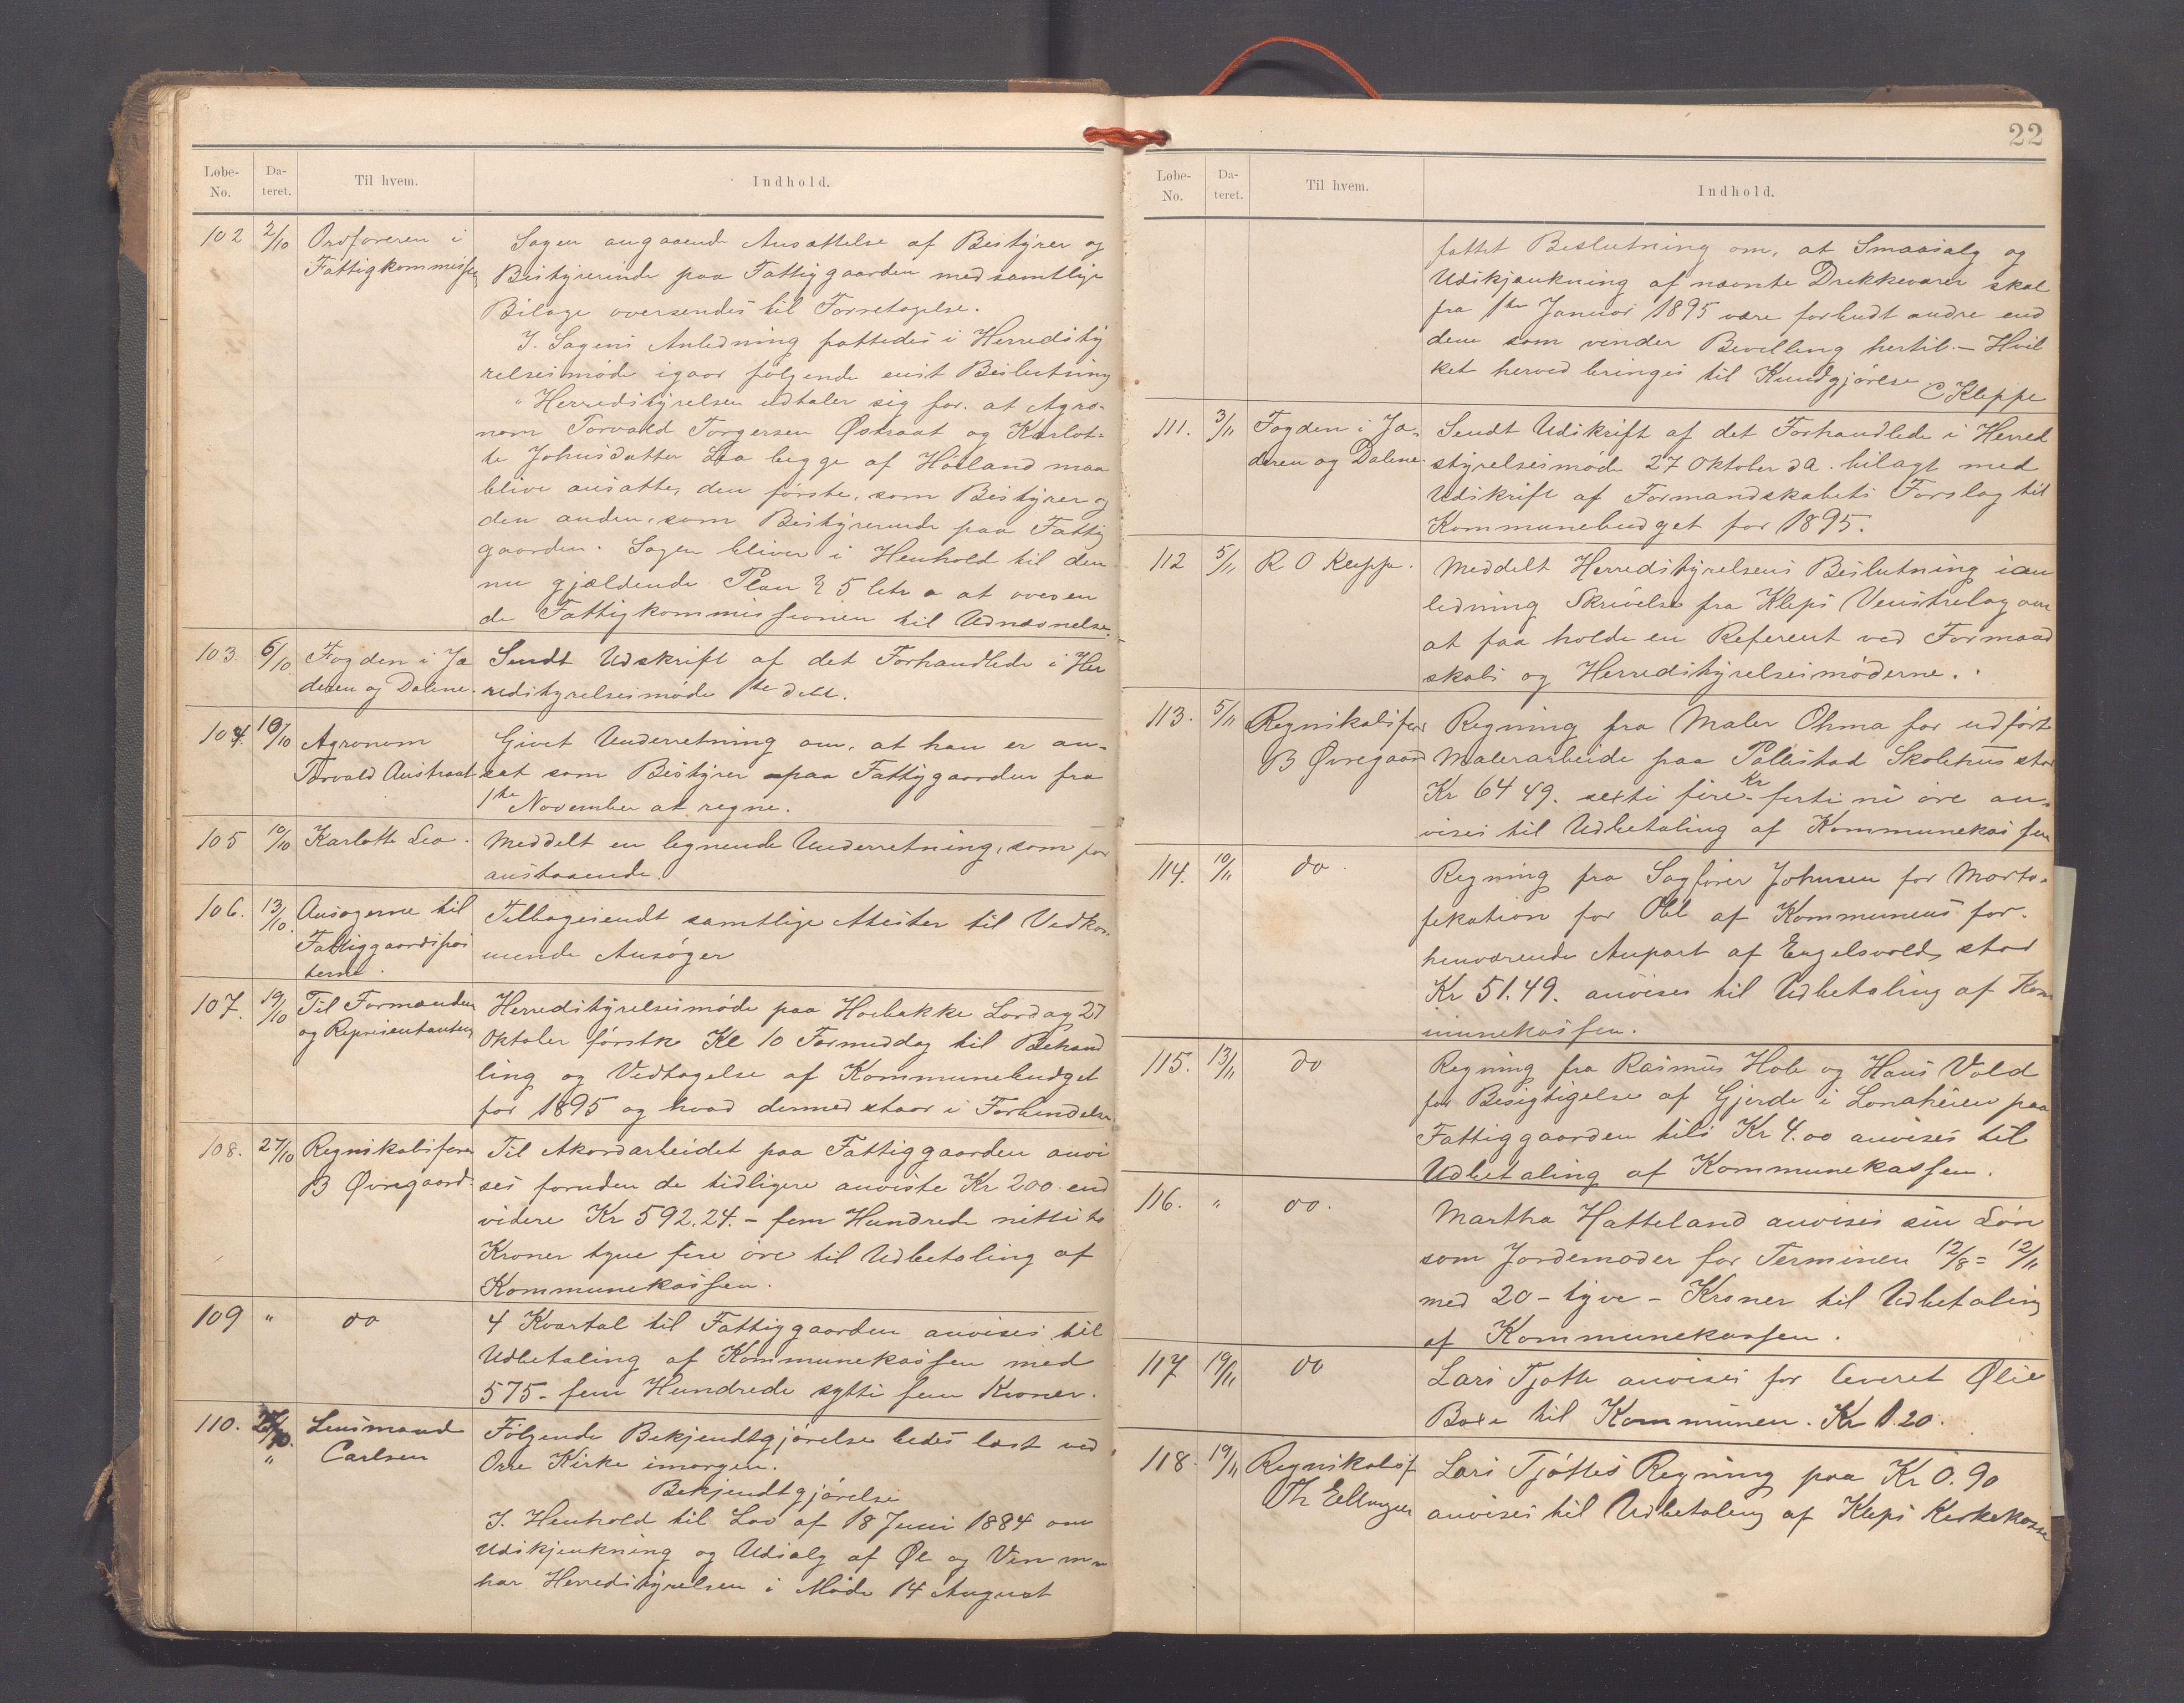 Løbe-No. Da-teret. Til hvem. Indhold.
102 2/10 Ordføreren i Fattigkommissen
Sagen angaaende Ansættelse af Bestyrer og
Bestyrerinde paa Fattiggaarden med samtlige
Bilage oversendes til Forretagelse.
I. Sagens Anledning fattedes i Herredsty
relsesmøde igaar følgende enst Beslutning
"Herredstyrelsen udtaler sig for. at Agro-
nom Torvald Torgersen Østraat og Karlot-
te Johnsdatter Lea begge af Høiland maa
blive ansatte, den første, som Bestyrer og
den anden, som Bestyrerinde paa Fattig
gaarden. Sagen bliver i Henhold til den
nu gjældende Plan § 5 litr a at oversen
de Fattigkommissionen til Udnævnelse.
103 6/10 Fogden i Jæ
deren og Dalene.
Sendt Udskrift af det Forhandlede i Her
redstyrelsesmøde 1ste ds.
104. 10/10 Agronom
Torvald Austraat
Givet Underretning om, at han er an-
sat som Bestyrer paa Fattiggaarden fra
1ste November at regne.
105 10/10 Karlotte Lea.
Meddelt en lignende Underretning, som for
anstaaende.
106. 13/10 Ansøgerne til
Fattiggaardspos
terne.
Tilbagesendt samtlige Atester til Vedkom
mende Ansøger
107. 19/10 Til Formænden
og Representanten
Herredstyrelsesmøde paa Hoebakke Lørdag 27
Oktober førstk Kl 10 Formiddag til Behand
ling og Vedtagelse af Kommunebudget
for 1895 og hvad dermed staar i Forbindelse
108. 27/10 Regnskabsfører
B Øvregaard.
Til Akordarbeidet paa Fattiggaarden anvi
ses foruden de tidligere anviste Kr 200 end
videre Kr 592.24. - fem Hundrede nitti to
Kroner tyve fire øre til Udbetaling af
Kommunekassen.
109 " do
4 Kvartal til Fattiggaarden anvises til
Udbetaling af Kommunekassen med
575- fem Hundrede sytti fem Kroner.
110. 27/10. " Lensmand
Carlsen
Følgende Bekjendtgjørelse bedes læst ved
Orre Kirke imorgen.
Bekjendtgjørelse
I. Henhold til Lov af 18 Juni 1884 om
Udskjænkning og Udsalg af Øl og Vin m m
har Herredstyrelsen i Møde 14 August
22
Løbe-No. Da-teret. Til hvem. Indhold.
fattet Beslutning om, at Smaasalg og
Udskjænkning af nævnte Drikkevarer skal
fra 1ste Januar 1895 være forbudt andre end
dem som vinder Bevilling hertil. - Hvil
ket herved bringes til Kundgjørelse
C Kleppe
111. 3/11 Fogden i Jæ-
deren og Dalene.
Sendt Udskrift af det Forhandlede i Herred
styrelsesmøde 27 Oktober d A. bilagt med
Udskrift af Formandskabets Forslag til
Kommunebudget for 1895.
112 5/11 R O Kleppe.
Meddelt Herredstyrelsens Beslutning i an
ledning Skrivelse fra Kleps Venstrelag om
at faa holde en Referent ved Formand
skabs og Herredstyrelsesmøderne.
113. 5/11 Regnskabsfører
B Øvregaard
Regning fra Maler Ohma for udført
Malerarbeide paa Pollestad Skolehus stor
Kr 64 49. sexti fire Kr forti ni øre an-
vises til Udbetaling af Kommunekassen
114. 10/11 do.
Regning fra Sagfører Johnsen for Morti-
fikation for Obl af Kommunens for-
henværende Anpart af Engelsvold, stor
Kr 51.49. anvises til Udbetaling af Kom
munekassen.
115. 13/11 do
Regning fra Rasmus Hole og Hans Vold
for Besigtigelse af Gjerde i Lonaheien paa
Fattiggaarden tils Kr 4.00 anvises til
Udbetaling af Kommunekassen.
116. " do.
Martha Hatteland anvises sin Løn
som Jordemoder for Terminen 12/8 = 12/11
med 20 - tyve - Kroner til Udbetaling
af Kommunekassen.
117 19/11 do
Lars Tjøtte anvises for leveret Ølie
Boxe til Kommunen. Kr 1.20.
118. 19/11 Regnskabsf
Th Ellingsen
Lars Tjøttes Regning paa Kr 0.90
anvises til Udbetaling af Kleps Kirkekasse